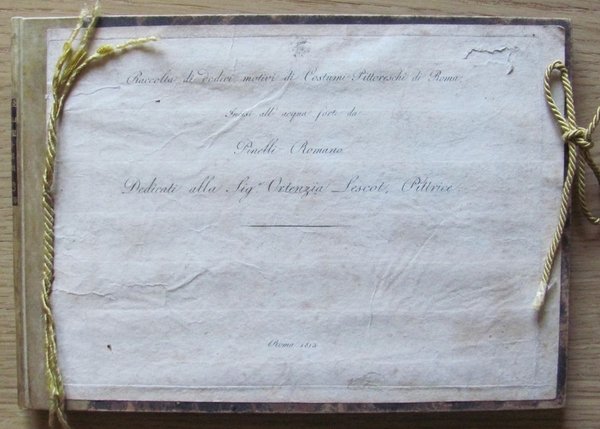 Raccolta di dodici motivi di Costumi Pittoreschi di Roma
Incisi all' acqua forte da
Pinelli Romano
Dedicati alla Sig.ª Ortenzia Lescot, Pittrice.
Roma 1813